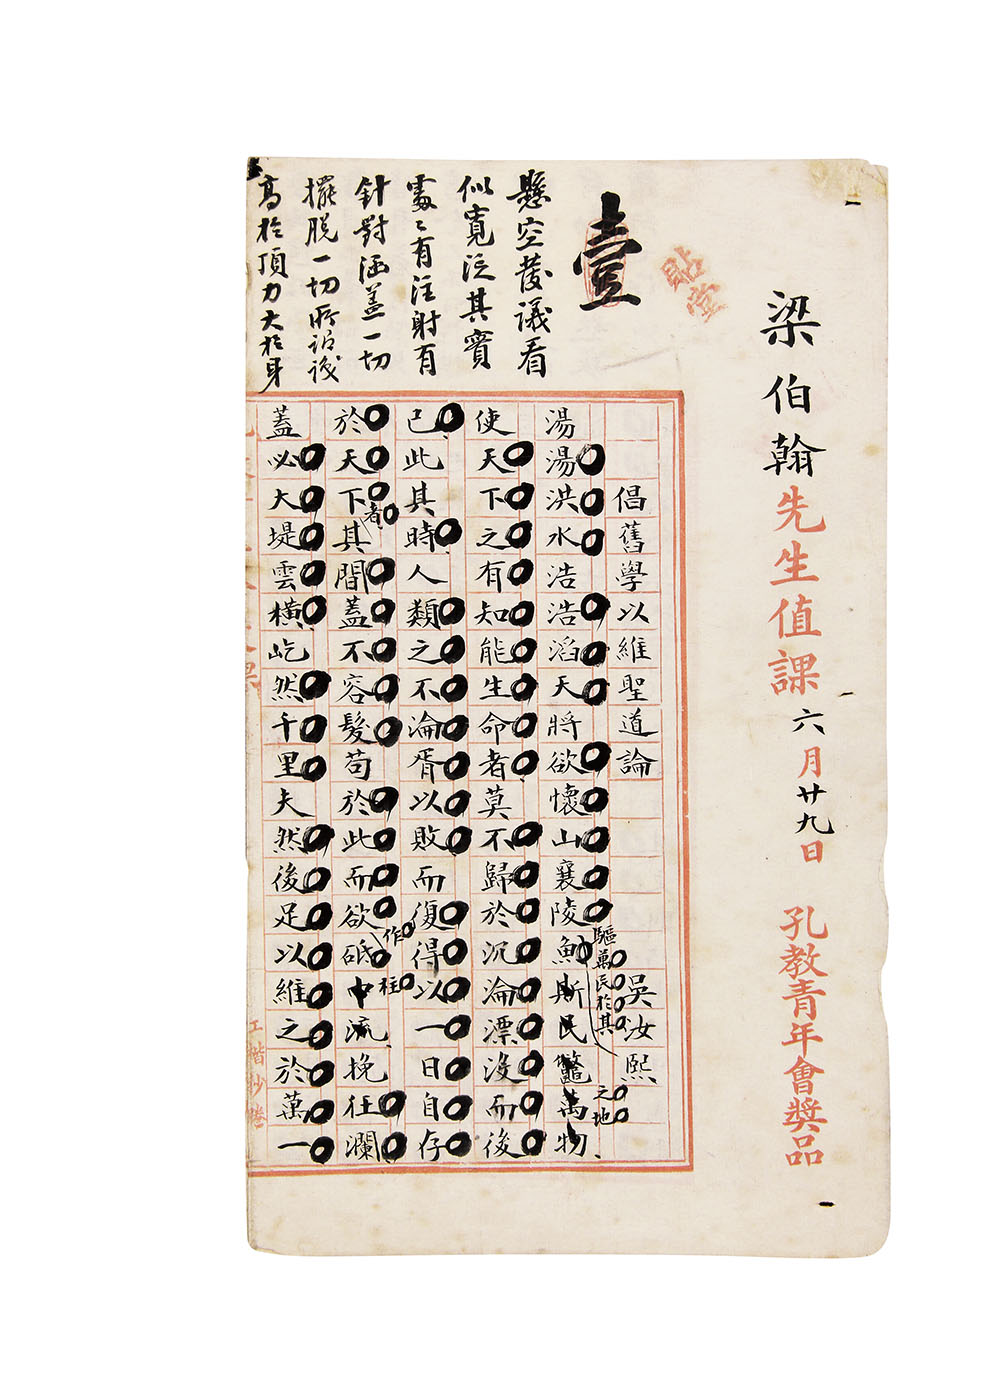 梁伯翰先生值課 六月廿九日 孔教青年會獎品
貼堂
壹
懸空發議看
似寬泛其實
處〻有注射有
針對涵蓋一切
擺脫一切所謂識
高於頂力大於身
倡舊學以維聖道論 吳汝熙
驅萬民於其
之地
湯湯洪水浩浩滔天將欲懷山襄陵魚斯民鼈萬物
使天下之有知能生命者莫不歸於沉淪漂沒而後
已此其時人類之不淪胥以敗而復得以一日自存
作柱
於天下者其間蓋不容髮苟於此而欲砥中流挽狂瀾
蓋必大堤雲橫屹然千里夫然後足以維之於萬一
工楷抄謄